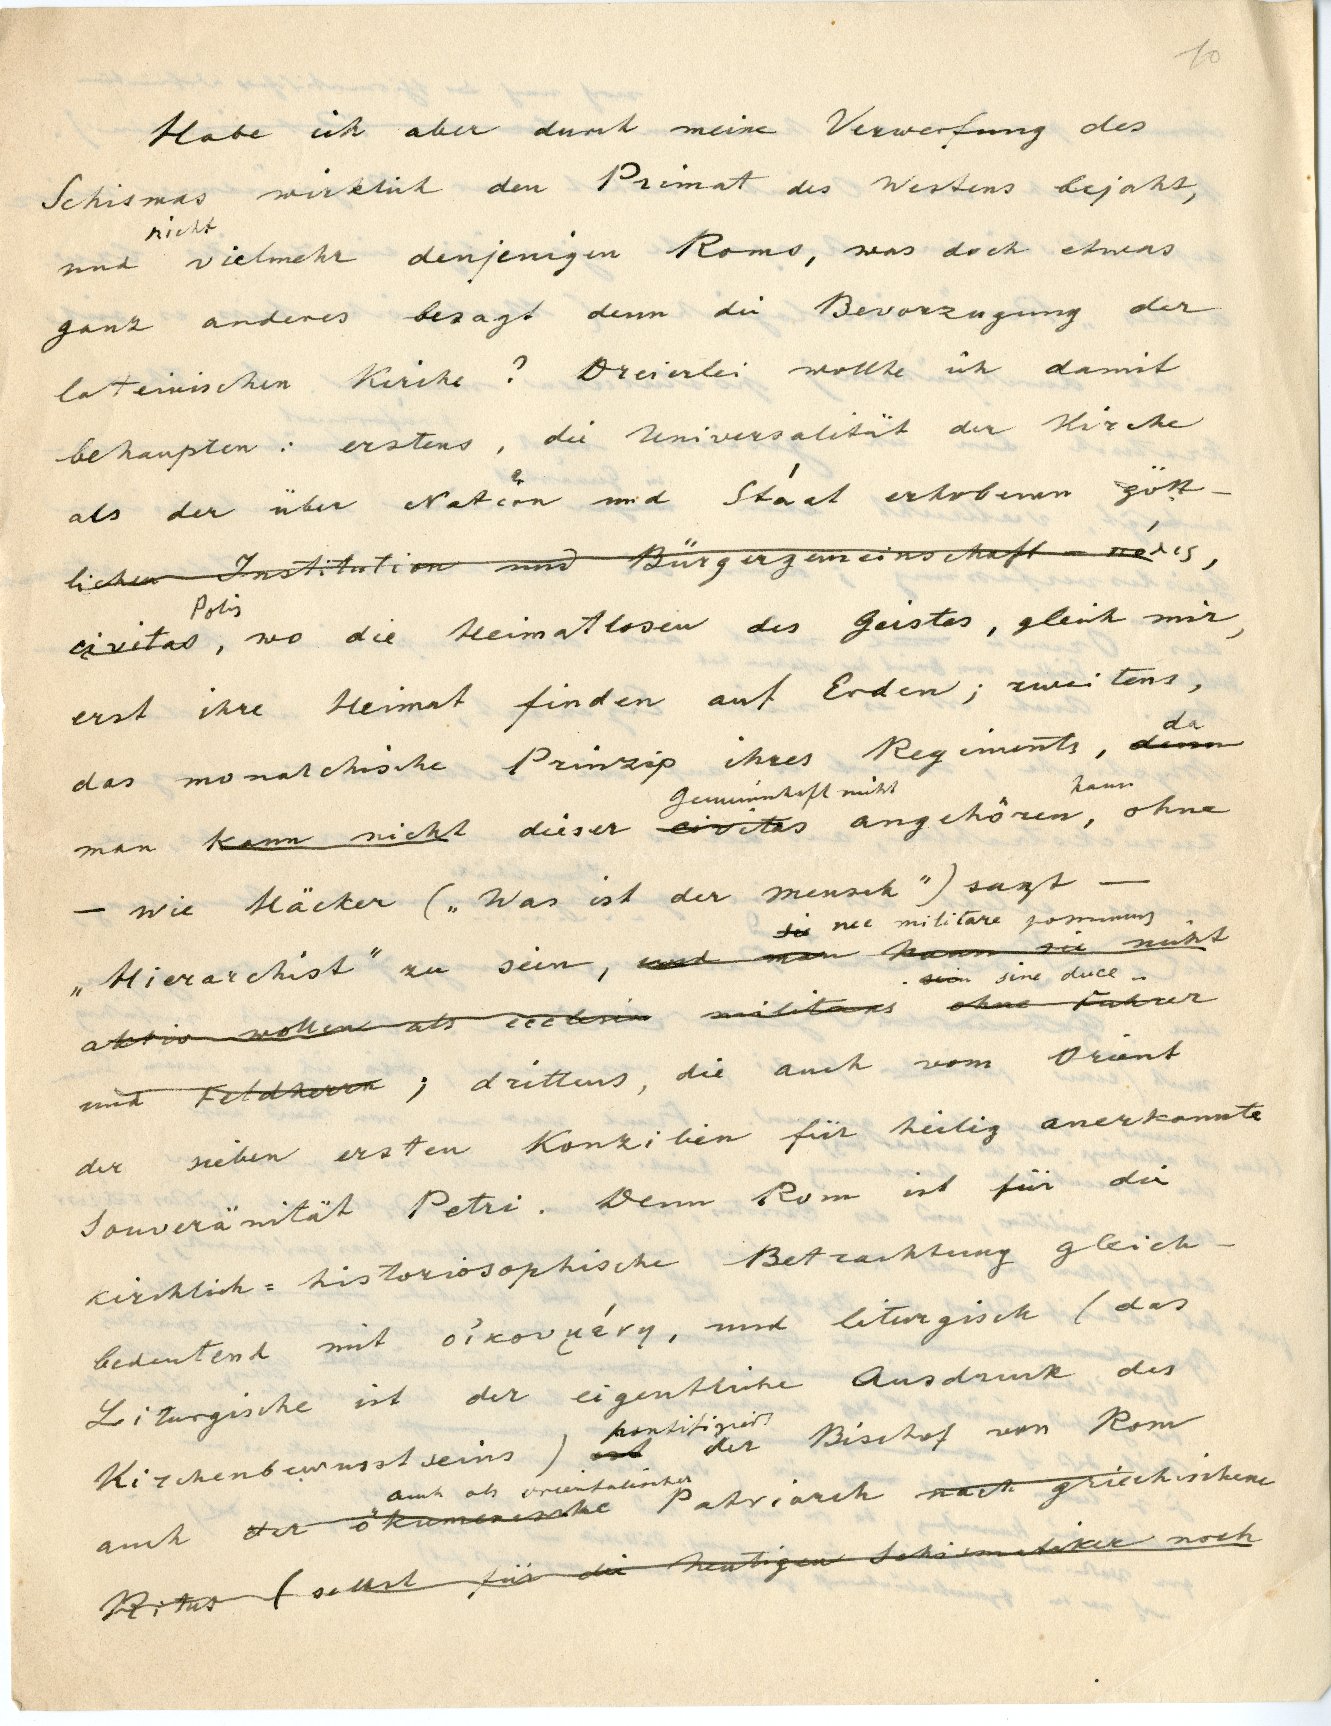 10
Habe ich aber durch meine Verwerfung des
Schismas wirklich den Primat des Westens bejaht,
nicht
und vielmehr denjenigen Roms, was doch etwas
ganz anderes besagt denn die Bevorzugung der
lateinischen Kirche? Dreierlei wollte ich damit
behaupten: erstens, die Universalität der Kirche
als der über Nation und Staat erhobenen gött-
lichen Institution und Bürgergemeinschaft – πόλις,
Polis
civitas, wo die Heimatlosen des Geistes, gleich mir,
erst ihre Heimat finden auf Erden; zweitens,
da
das monarchische Prinzip ihres Regiments, denn
Gemeinschaft nicht kann
man kann nicht dieser civitas angehören, ohne
— wie Häcker („Was ist der Mensch") sagt —
sie nec militare possumus
„Hierarchist" zu sein, und man kann sie nicht
sine duce
aktiv wollen als ecclesia militans ohne Führer
und Feldherrn; drittens, die auch vom Orient
der sieben ersten Konzilien für heilig anerkannte
Souveränität Petri. Denn Rom ist für die
kirchlich=historiosophische Betrachtung gleich-
bedeutend mit οἰκουμένη, und liturgisch (das
Liturgische ist der eigentliche Ausdruck des
pontifiziert
Kirchenbewusstseins) ist der Bischof von Rom
auch als orientalischer
auch der ökumenische Patriarch nach griechischem
Ritus (selbst für die heutigen Schismatiker noch